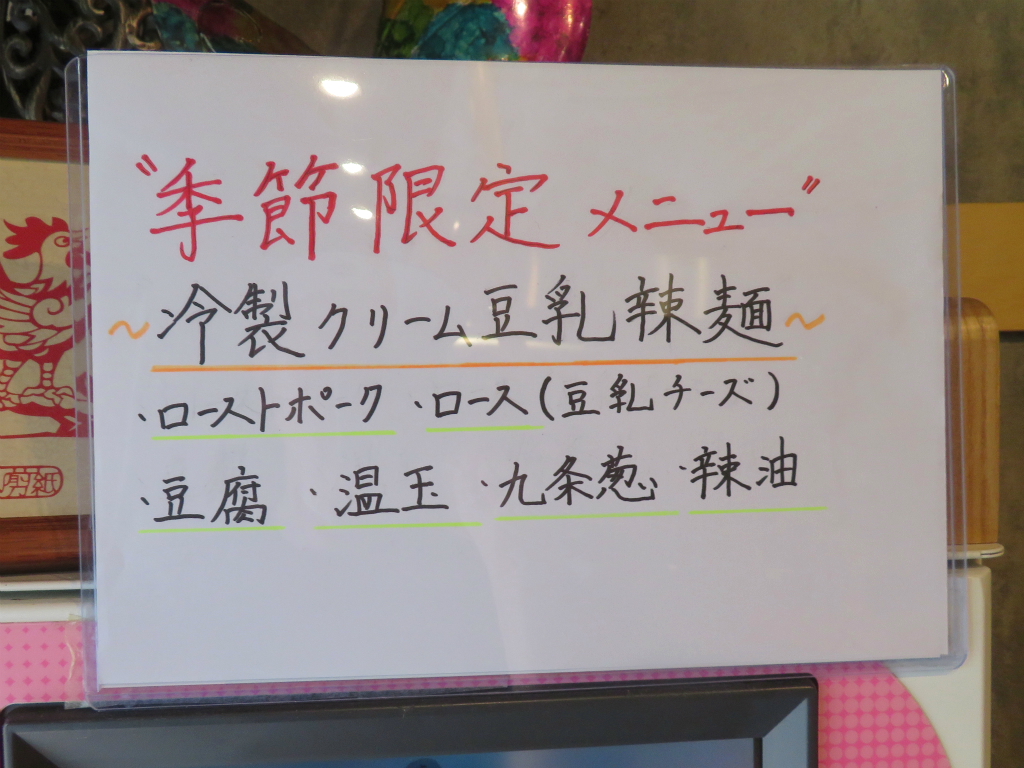 〝季節限定メニュー〞
〜冷製クリーム豆乳辣麺〜
・ローストポーク ・ロース(豆乳チーズ)
・豆腐 ・温玉 ・九条葱 ・辣油
剪紙